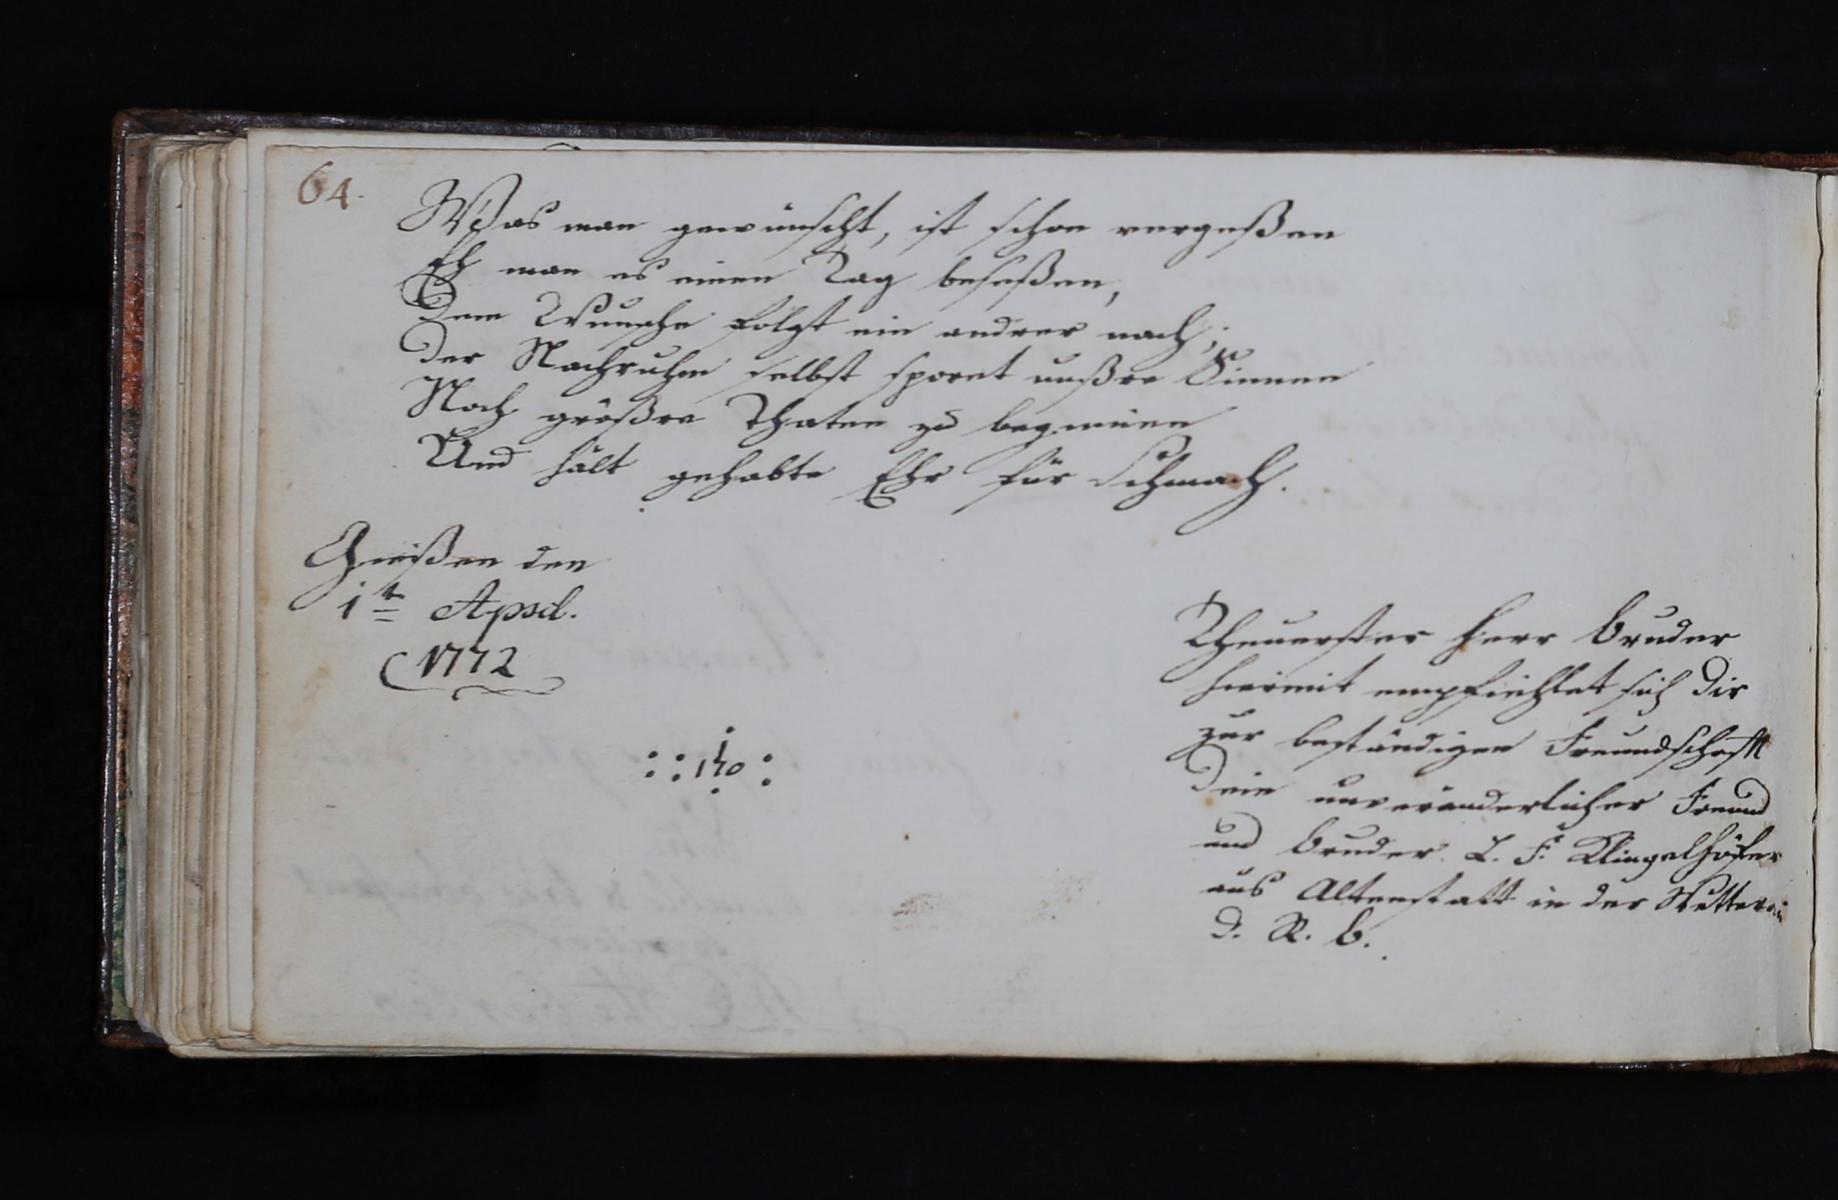 64.
Was man gewünscht, ist schon vergeßen
Eh man es einen Tag beseßen,
Dem Wunsche folgt ein andrer nach;
Der Nachruhm selbst spornt unßre Sinnen
Noch größre Thaten zu beginnen
Und hält gehabte Ehr für Schmach.
Gießen den
1t April.
1772
Theuerster Herr Bruder
hiermit empfiehlet sich dir
zur beständigen Freundschafft
Dein unveränderlicher Freund
und Bruder. L. F. Klingelhöffer
aus Altenstatt in der Wetterau
d. R. b.